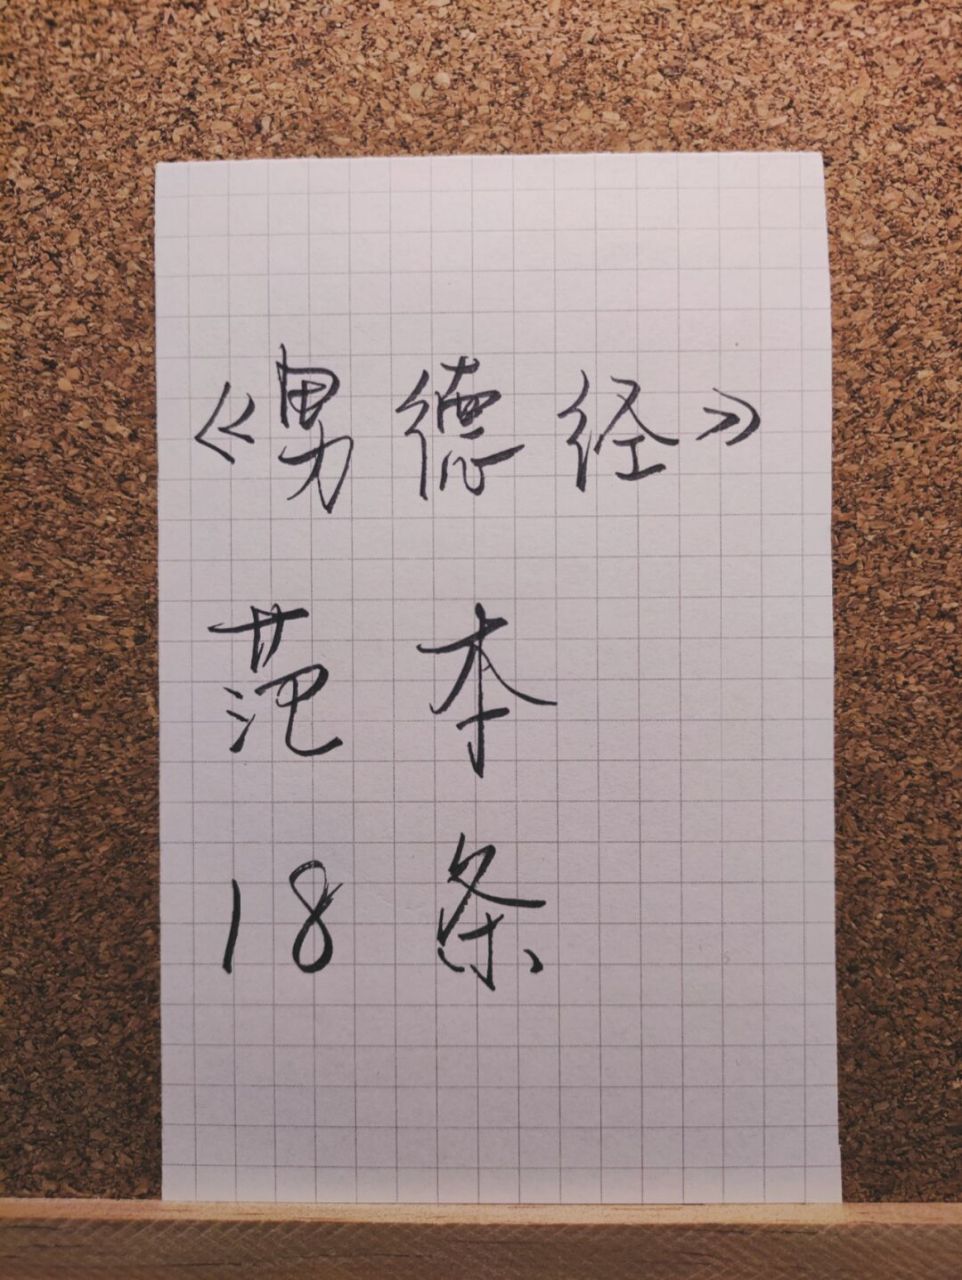 《男德经》
范本
18条